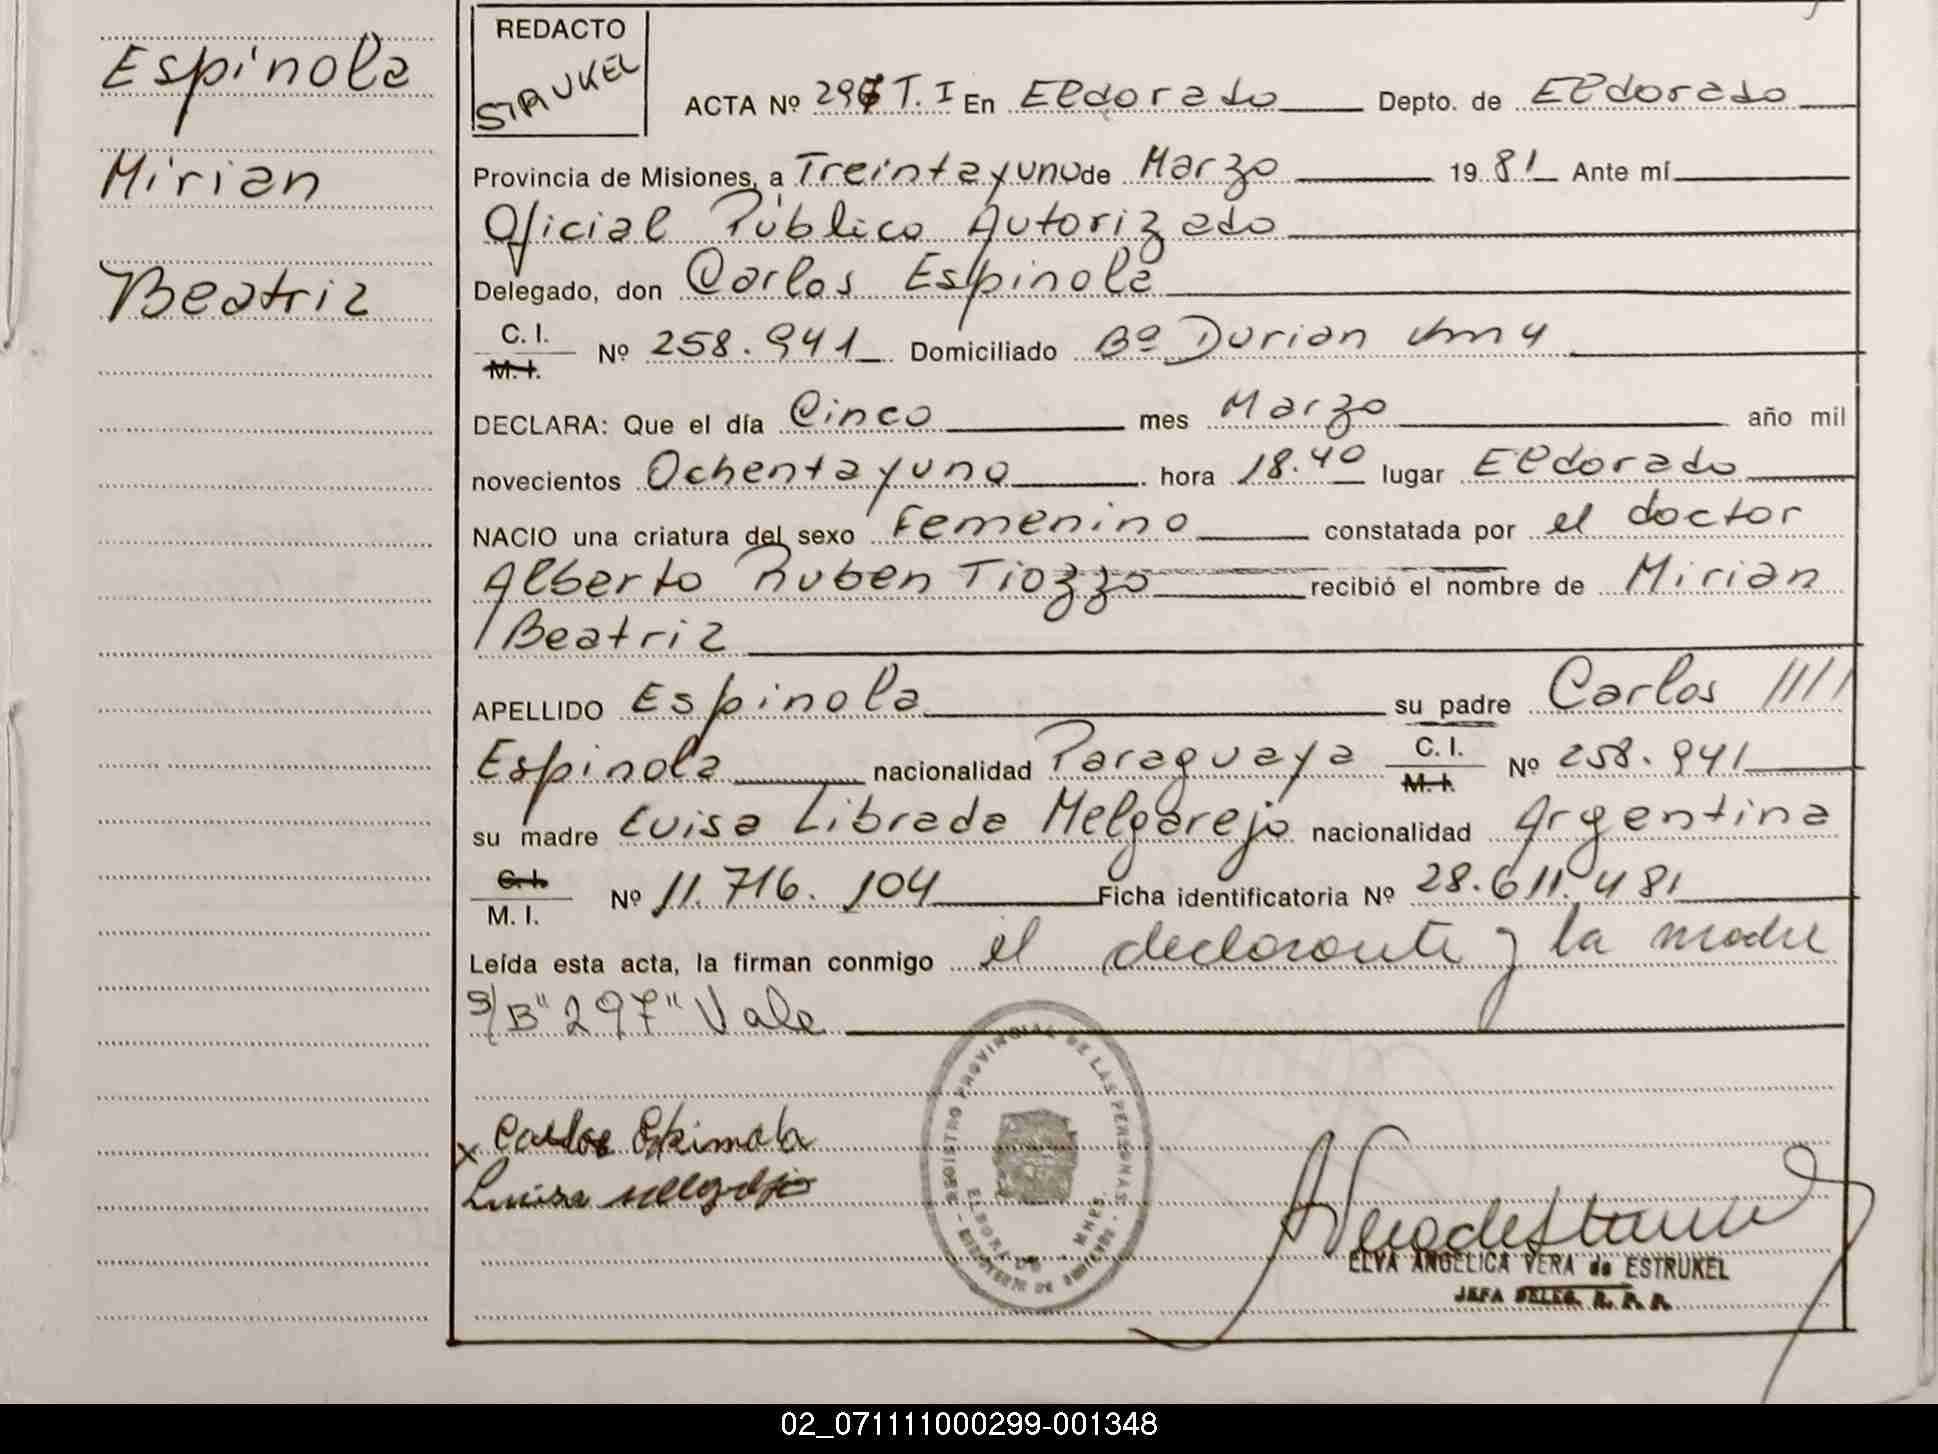 Espinola
Mirian
Beatriz
REDACTO
STRUKEL
ACTA Nº 297 T. I En Eldorado Depto. de Eldorado
Provincia de Misiones, a Treintayuno de Marzo 19 81 Ante mí
Oficial Público Autorizado
Delegado, don Carlos Espinola
C. I.
M. I. Nº 258.941 Domiciliado Bº Dorian km 4
DECLARA: Que el día Cinco mes Marzo año mil
novecientos Ochentayuno hora 18.40 lugar Eldorado
NACIO una criatura del sexo Femenino constatada por el doctor
Alberto Ruben Tiozzo recibió el nombre de Mirian
Beatriz
APELLIDO Espinola su padre Carlos
Espinola nacionalidad Paraguaya C. I. M. I. Nº 258.941
su madre Luisa Librada Melgarejo nacionalidad Argentina
C. I.
M. I. Nº 11.716.104 Ficha identificatoria Nº 28.611.481
Leída esta acta, la firman conmigo el declarante y la madre
S/B "297" Vale
x Carlos Espinola
Luisa Melgarejo
REGISTRO PROVINCIAL DE LAS PERSONAS
ELDORADO MNES
ELVA ANGELICA VERA de ESTRUKEL
JEFA DELEG. R. P. P.
02_071111000299-001348